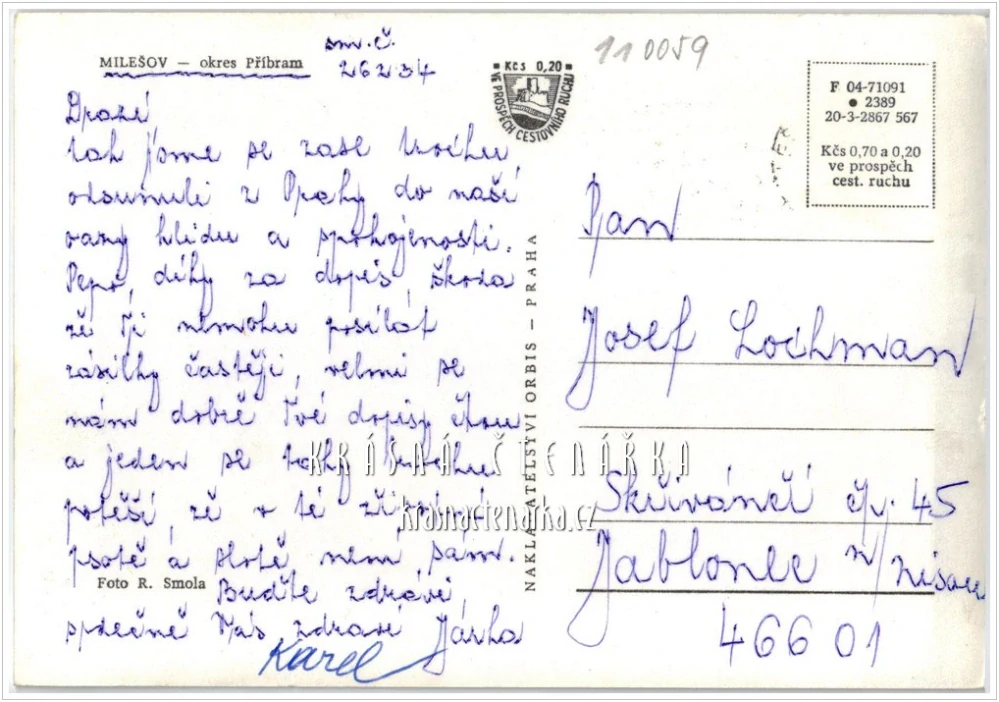 MILEŠOV — okres Příbram
sm.č.
26234
110059
Kčs 0,20
VE PROSPĚCH CESTOVNÍHO RUCHU
F 04-71091
• 2389
20-3-2867 567
Kčs 0,70 a 0,20
ve prospěch
cest. ruchu
Drazí
tak jsme se zase trochu
odsunuli z Prahy do naší
oazy klidu a spokojenosti.
Pepo, díky za dopis, škoda
že Ti nemohu posílat
zásilky častěji, velmi se
nám dobře Tvé dopisy čtou
a jeden se taky trochu
potěší, že v té
psotě a slotě není sám.
Buďte zdrávi,
srdečně Vás zdraví Jarka
Karel
Foto R. Smola
NAKLADATELSTVÍ ORBIS — PRAHA
Pan
Josef Lochman
Skřivánčí čp. 45
Jablonec n/Nisou
46601
KRÁSNÁ ČTENÁŘKA
krasnactenarka.cz